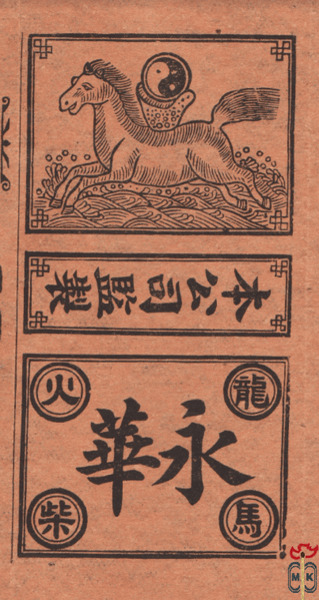 本公司監製
龍馬
永華
火柴
MK